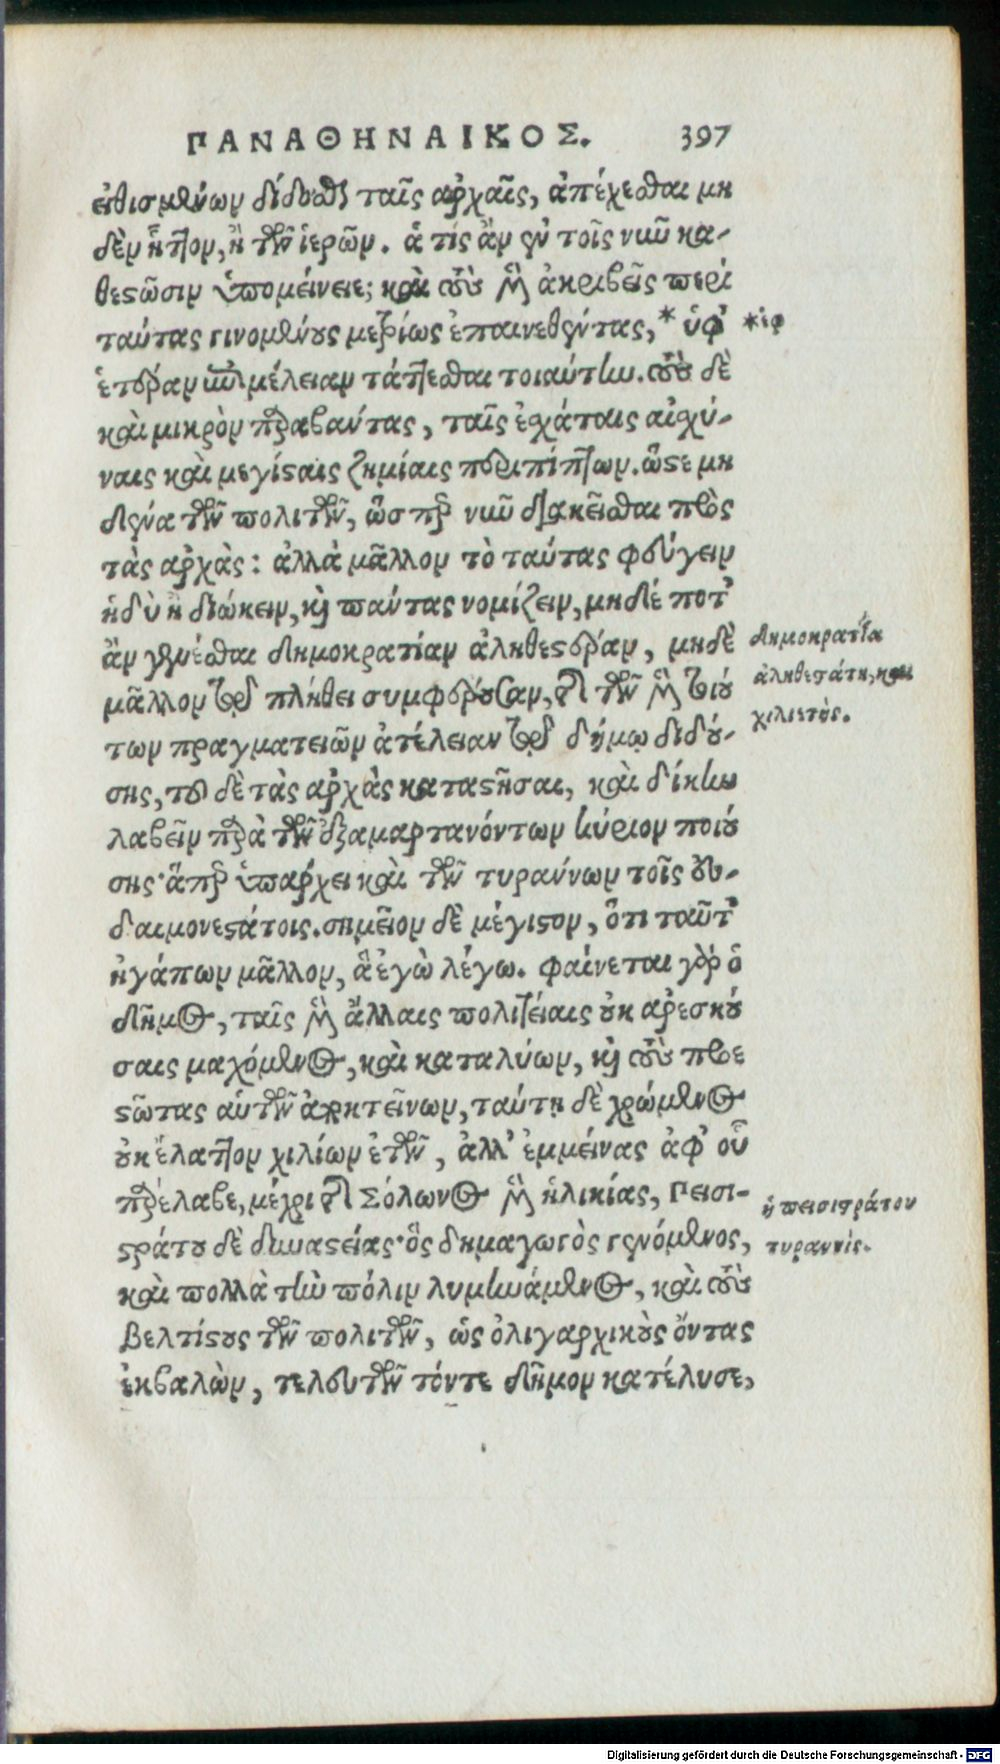 ΠΑΝΑΘΗΝΑΙΚΟΣ. 397
εἰθισμένων δίδοσθαι ταῖς ἀρχαῖς, ἀπέχεσθαι μη
δὲν ἧττον, ἢ τῶν ἱερῶν. ἃ τίς ἂν ἐν τοῖς νῦν κα-
θεστῶσιν ὑπομείνειε; καὶ τοὺς μὲν ἀκριβεῖς περὶ
ταύτας γινομένους μετρίως ἐπαινεθέντας, * ὑφ' *ἐφ
ἑτέραν ἐπιμέλειαν τάττεσθαι τοιαύτην. τοὺς δὲ
καὶ μικρὸν παραβάντας, ταῖς ἐσχάταις αἰσχύ-
ναις καὶ μεγίσταις ζημίαις περιπίπτων. ὥστε μη
δένα τῶν πολιτῶν, ὥσπερ νῦν διακεῖσθαι πρὸς
τὰς ἀρχὰς: ἀλλὰ μᾶλλον τὸ ταύτας φεύγειν
ἡδὺ ἢ διώκειν, καὶ πάντας νομίζειν, μηδέ ποτ'
ἂν γενέσθαι δημοκρατίαν ἀληθεστέραν, μηδὲ
δημοκρατία
ἀληθεστάτη, και
χιλιετὸς.
μᾶλλον τῷ πλήθει συμφέρουσαν, τῆς τῶν μὲν τοιού
των πραγματειῶν ἀτέλειαν τῷ δήμῳ διδού-
σης, τοῦ δὲ τὰς ἀρχὰς καταστῆσαι, καὶ δίκην
λαβεῖν παρὰ τῶν ἐξαμαρτανόντων κύριον ποιού
σης· ἅπερ ὑπάρχει καὶ τῶν τυράννων τοῖς εὐ-
δαιμονεστάτοις. σημεῖον δὲ μέγιστον, ὅτι ταῦτ'
ἠγάπων μᾶλλον, ἃ ἐγὼ λέγω. φαίνεται γὰρ ὁ
δῆμος, ταῖς μὲν ἄλλαις πολιτείαις οὐκ ἀρεσκού
σαις μαχόμενος, καὶ καταλύων, καὶ τοὺς προε
στῶτας αὐτῶν ἀποκτείνων, ταύτῃ δὲ χρώμενος
οὐκ ἔλαττον χιλίων ἐτῶν, ἀλλ' ἐμμείνας ἀφ' οὗ
παρέλαβε, μέχρι τῆς Σόλωνος μὲν ἡλικίας, Πεισι-
στράτου δὲ δυναστείας· ὃς δημαγωγὸς γενόμενος,
ἡ πεισιστράτου
τυραννὶς.
καὶ πολλὰ τὴν πόλιν λυμηνάμενος, καὶ τοὺς
βελτίστους τῶν πολιτῶν, ὡς ὀλιγαρχικοὺς ὄντας
ἐκβαλὼν, τελευτῶν τόντε δῆμον κατέλυσε,
Digitalisierung gefördert durch die Deutsche Forschungsgemeinschaft - DFG